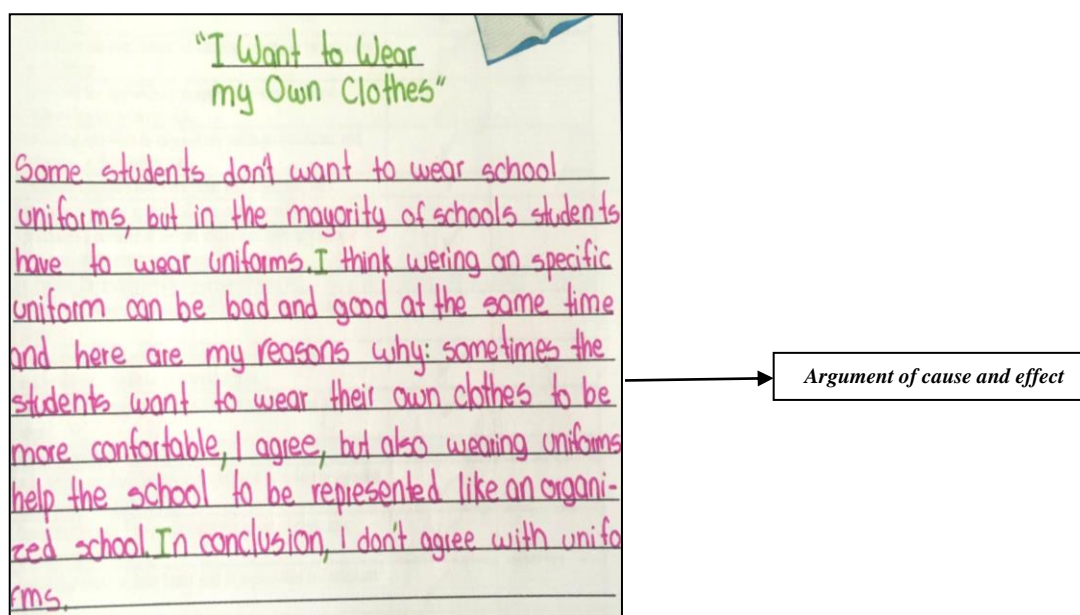 "I Want to Wear
my Own Clothes"
Some students don't want to wear school
uniforms, but in the mayority of schools students
have to wear uniforms. I think wering an specific
uniform can be bad and good at the same time
and here are my reasons why: sometimes the
students want to wear their own clothes to be
more confortable, I agree, but also wearing uniforms
help the school to be represented like an organi-
zed school. In conclusion, I don't agree with unifo
rms.
Argument of cause and effect